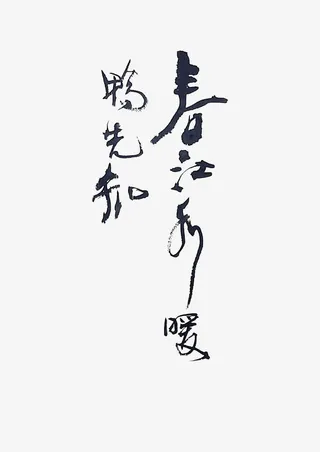 春江水暖
鸭先知